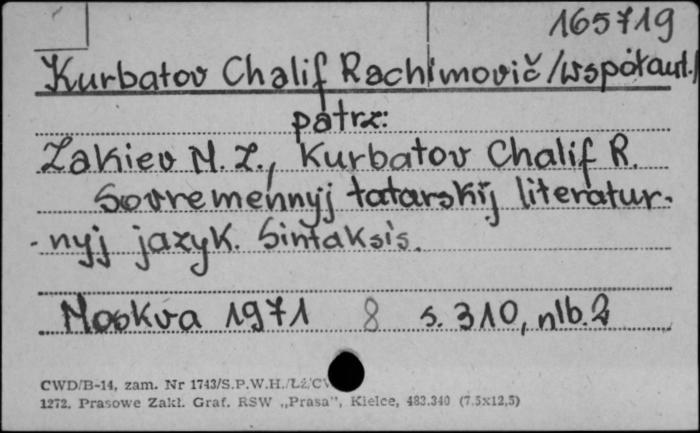 165719
Kurbatov Chalif Rachimovič /współaut./
patrz:
Zakiev M. Z., Kurbatov Chalif R.
Sovremennyj tatarskij literatur-
-nyj jazyk. Sintaksis.
Moskva 1971 8 s. 310, nlb. 2
CWD/B-14, zam. Nr 1743/S.P.W.H./Łż/CW
1272. Prasowe Zakł. Graf. RSW „Prasa”, Kielce, 483.340 (7.5x12,5)